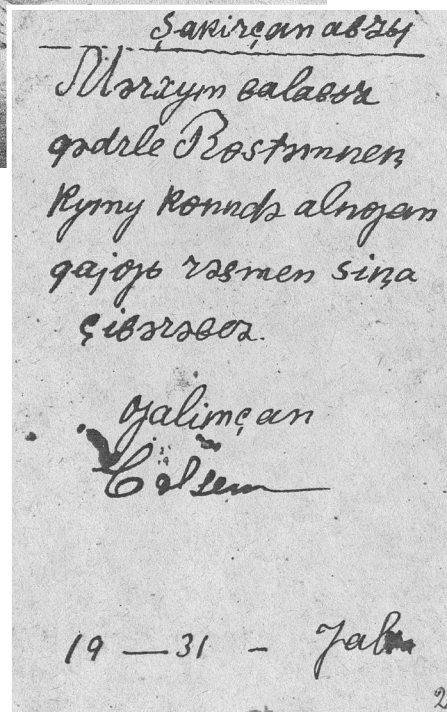 Şakirçan aвzь
Mərxym вalaвьz
qədrle Rɵstəmneꞑ
kymy kɵnndə alnƣan
qajƣь rəsmen siꞑa
çiвərəвez.
Ƣalimçan
Gɵlsem
19 — 31 –
2